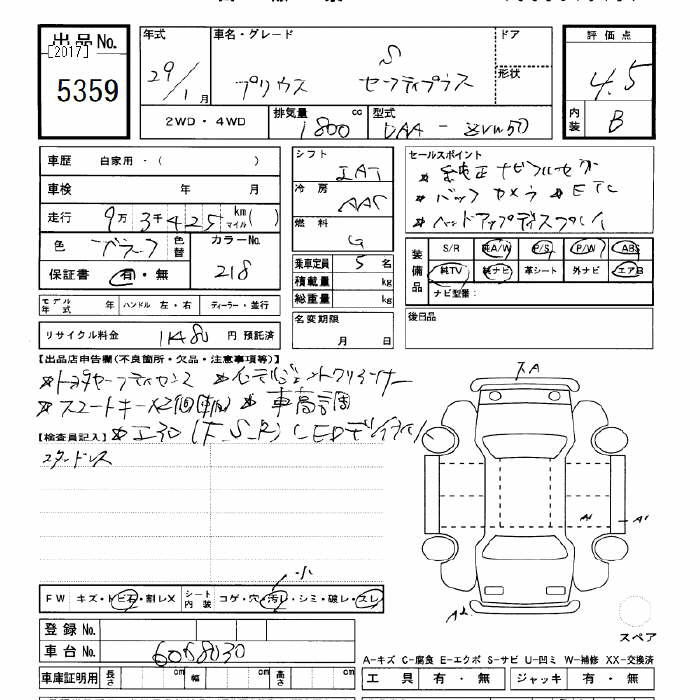 出品No.
[2017]
5359
年式
29/1月
車名・グレード
S
プリウス セーフティプラス
ドア
形状
評価点
4.5
内装 B
2WD・4WD
排気量 1800 cc
型式 DAA - ZVW50
車歴 自家用・( )
車検 年 月
走行 9万3千425 km マイル( )
色 ブラック 色替
カラーNo. 218
保証書 有・無
モデル年式 年 ハンドル 左・右 ディーラー・並行
リサイクル料金 円 預託済
シフト IAT
冷房 AAC
燃料 G
乗車定員 5 名
積載量 kg
総重量 kg
名変期限
月 日
セールスポイント
* 純正ナビフルセグ
* バックカメラ * ETC
* ヘッドアップディスプレイ
装備品
S/R 純A/W P/S P/W ABS
純TV 純ナビ 革シート 外ナビ エアB
ナビ型番:
後日品
【出品店申告欄(不良箇所・欠品・注意事項等)】
* トヨタセーフティセンス * インテリジェントクリアランサー
* スマートキー×2個 * 車高調
【検査員記入】 * エアロ (F.S.R) LEDデイライト
スタッドレス
小
FW キズ・トビ石・割レX シート内装 コゲ・穴・汚レ・シミ・破レ・スレ
登録No.
車台No. 6068030
車庫証明用 長さ cm 幅 cm 高さ cm
A1
A1
A2
スペア
A-キズ C-腐食 E-エクボ S-サビ U-凹ミ W-補修 XX-交換済
工具 有・無 ジャッキ 有・無